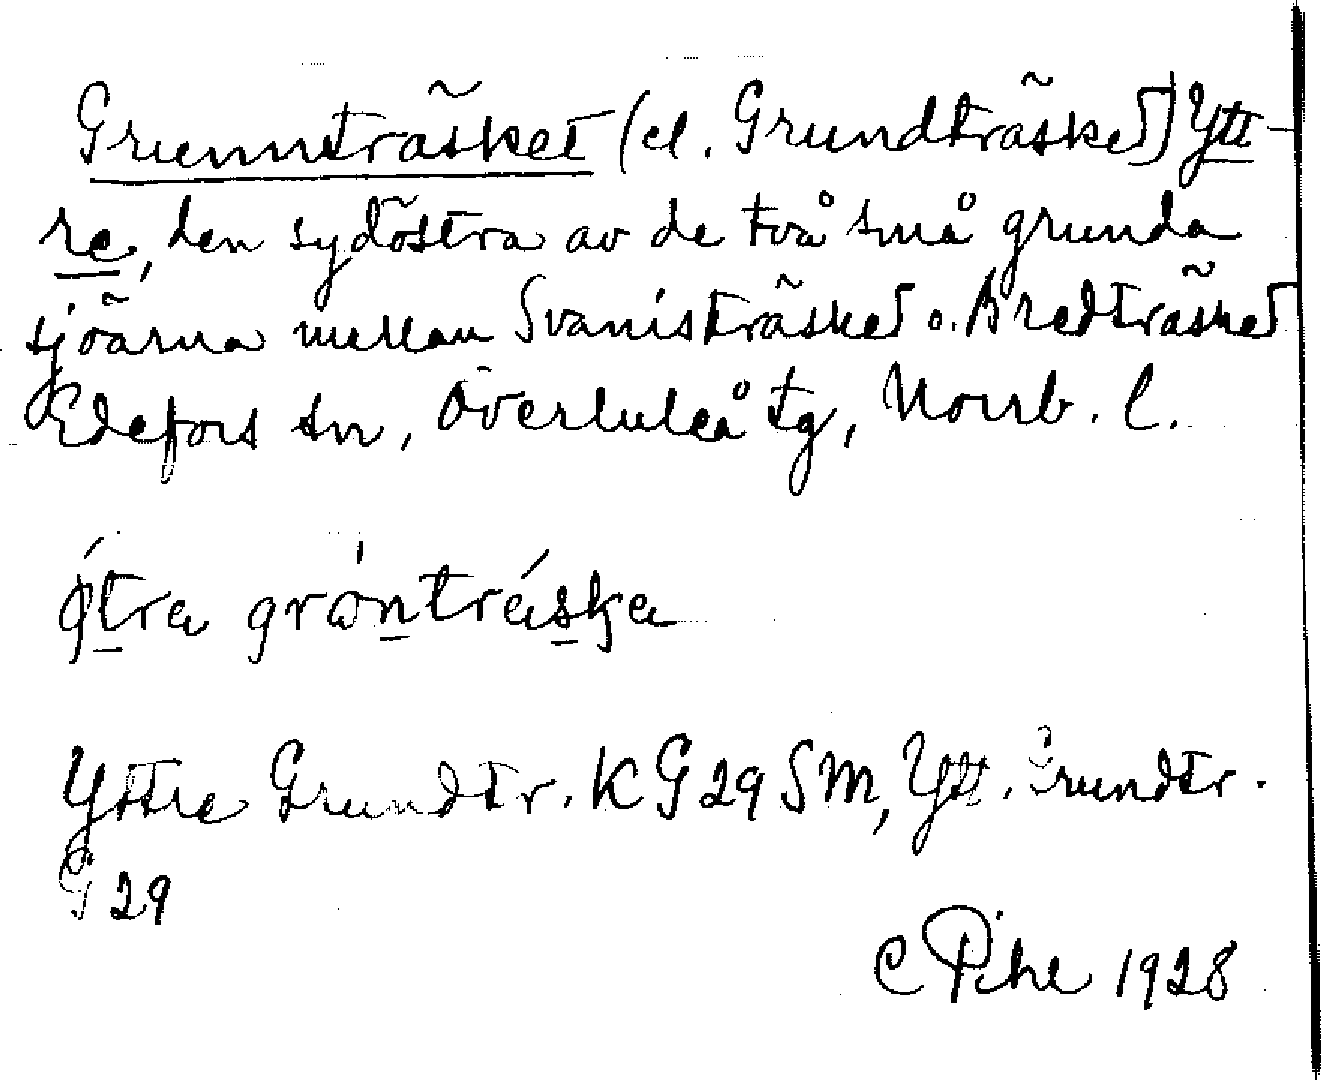 Grunnträsket (el. Grundträsket) Ytt-
re, den sydöstra av de två små grunda
sjöarna mellan Svanisträsket o. Bredträsket
Edefors sn, Överluleå tg, Norrb. l.
ýtra gròntrã́ska
Yttre Grundtr. KG29SM, Ytt. Grundtr.
G29
C Pihl 1928